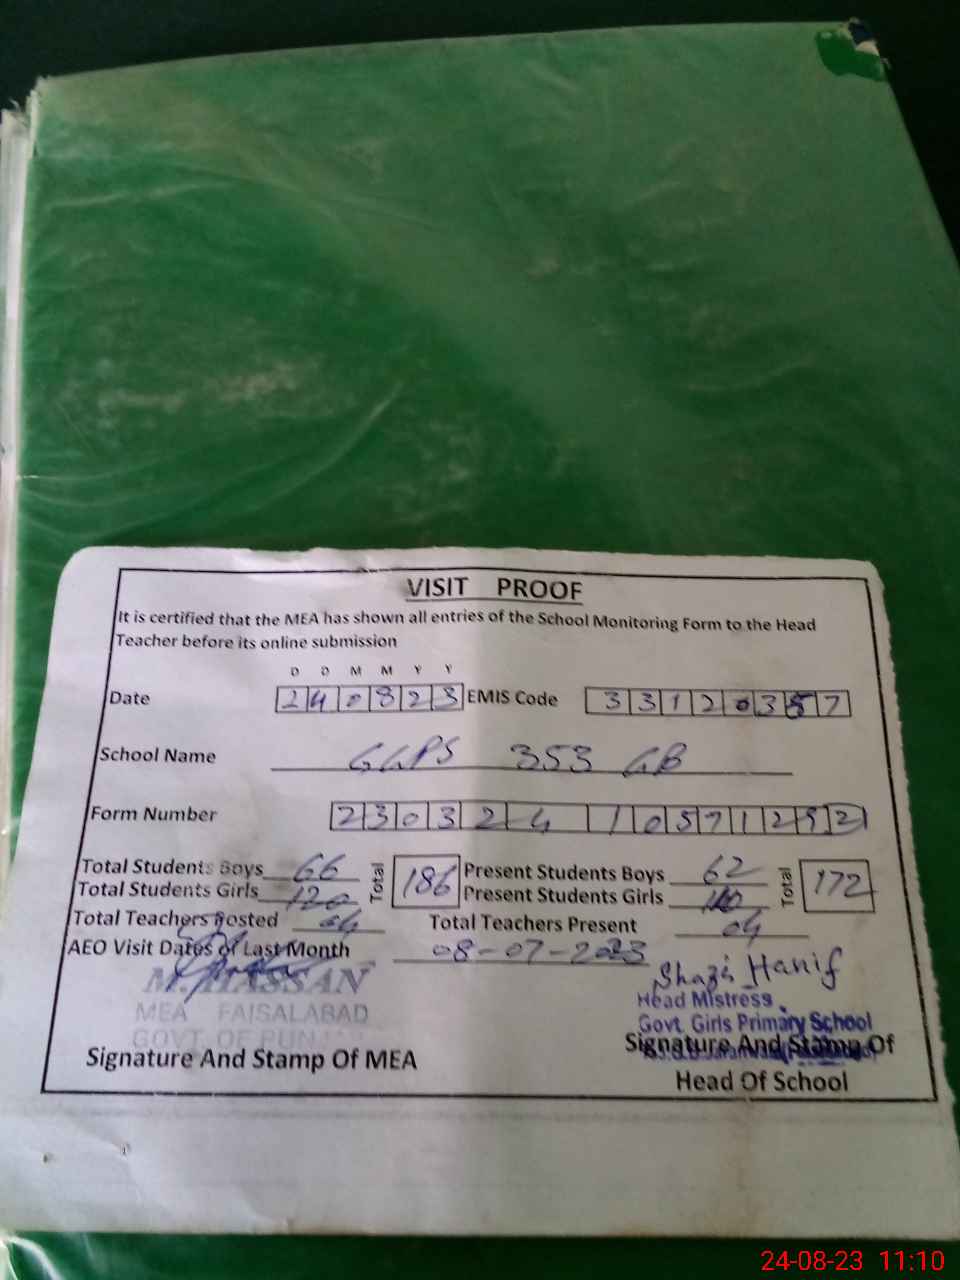 VISIT PROOF
It is certified that the MEA has shown all entries of the School Monitoring Form to the Head
Teacher before its online submission
D D M M Y Y
Date 240823 EMIS Code 33120357
School Name GGPS 353 GB
Form Number 230324 10571252
Total Students Boys 66 Total 186 Present Students Boys 62 Total 172
Total Students Girls 120 Present Students Girls 110
Total Teachers Posted 04 Total Teachers Present 04
AEO Visit Dates of Last Month 08-07-2023
M. HASSAN
MEA FAISALABAD
GOVT. OF PUNJAB
Signature And Stamp Of MEA
Shazi Hanif
Head Mistress
Govt. Girls Primary School
Signature And Stamp Of
Head Of School
24-08-23 11:10